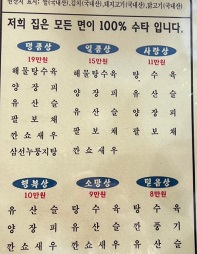 원산지 표시: 쌀(국내산),김치(국내산),돼지고기(국내산),닭고기(국내산)
저희 집은 모든 면이 100% 수타 입니다.
명품상
19만원
해물탕수육
양장피
유산슬
팔보채
깐쇼새우
삼선누룽지탕
일품상
15만원
해물탕수육
양장피
유산슬
팔보채
깐쇼새우
사랑상
11만원
탕수육
양장피
유산슬
팔보채
행복상
10만원
유산슬
양장피
깐쇼새우
소망상
9만원
탕수육
유산슬
깐쇼새우
믿음상
8만원
탕수육
깐풍기
유산슬